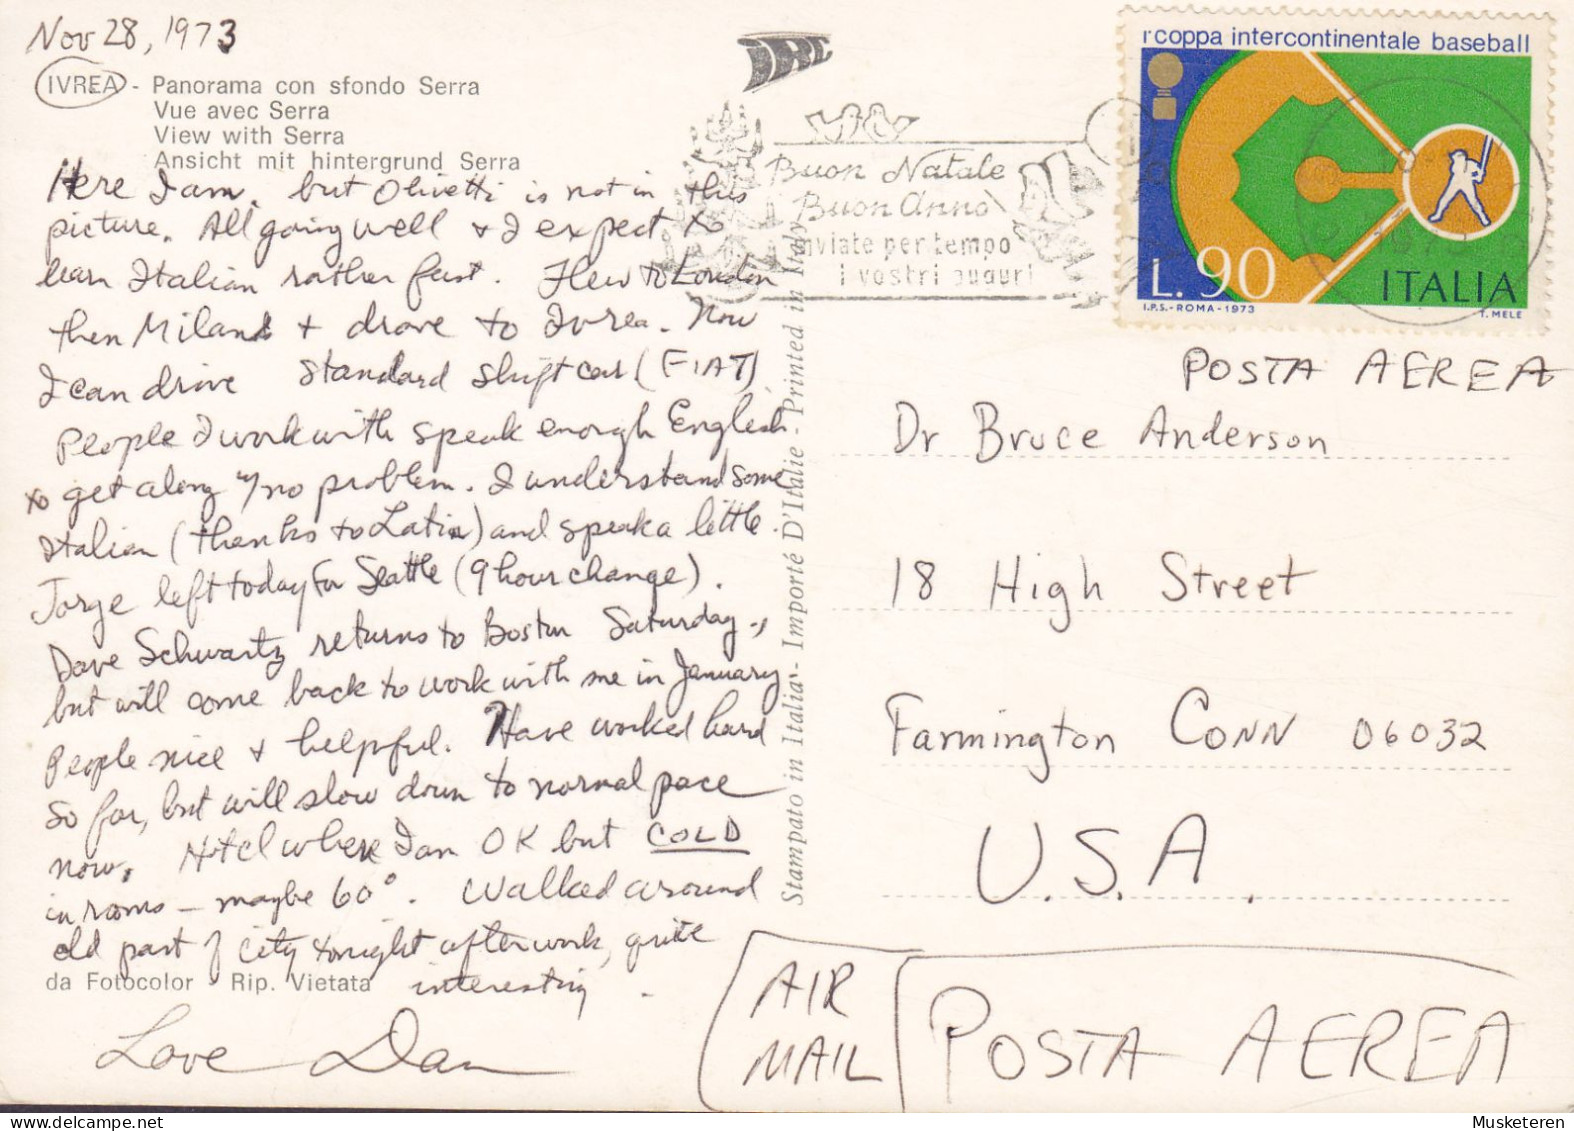 Nov 28, 1973
IVREA - Panorama con sfondo Serra
Vue avec Serra
View with Serra
Ansicht mit hintergrund Serra
Here I am, but Olivetti is not in this
picture. All going well & I expect to
learn Italian rather fast. Flew to London
then Milan & drove to Ivrea. Now
I can drive standard shift car (FIAT)
People I work with speak enough English
to get along w/ no problem. I understand some
Italian (thanks to Latin) and speak a little.
Jorge left today for Seattle (9 hour change).
Dave Schwartz returns to Boston Saturday.,
but will come back to work with me in January
People nice & helpful. Have worked hard
so far, but will slow down to normal pace
now. Hotel where I am OK but COLD
in rooms - maybe 60°. Walked around
old part of city tonight after work, quite
interesting.
da Fotocolor Rip. Vietata
Love Dan
Stampato in Italia - Importé D'Italie - Printed in Italy
IRC
Buon Natale
Buon Anno
inviate per tempo
i vostri auguri
1ª coppa intercontinentale baseball
L. 90
ITALIA
I.P.S. - ROMA - 1973
T. MELE
POSTA AEREA
Dr Bruce Anderson
18 High Street
Farmington CONN 06032
U.S.A.
AIR
MAIL
POSTA AEREA
Musketeren